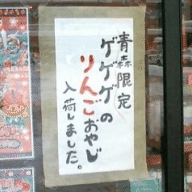 青森限定
ゲゲゲの
りんごおやじ
入荷しました。